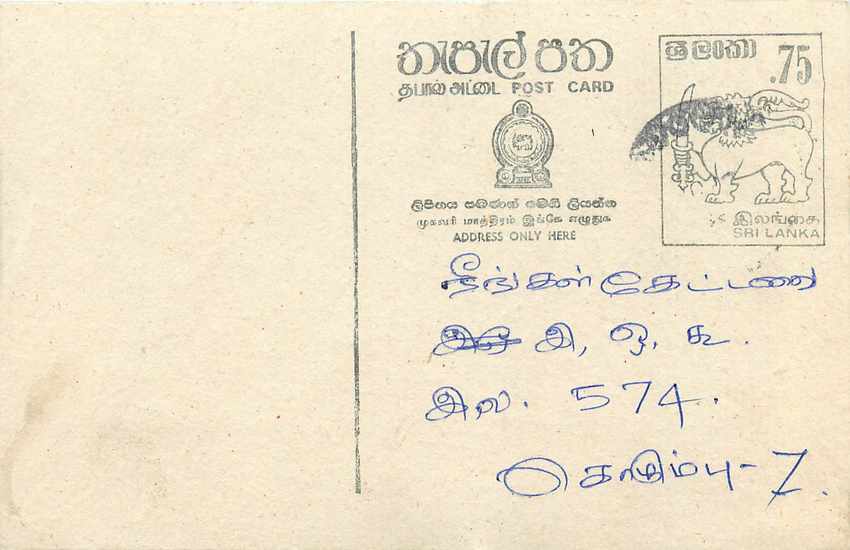 තැපැල් පත
தபால் அட்டை POST CARD
ලිපිනය පමණක් මෙහි ලියන්න
முகவரி மாத்திரம் இங்கே எழுதுக
ADDRESS ONLY HERE
ශ්‍රී ලංකා
.75
இலங்கை
SRI LANKA
நீங்கள் கேட்டவை
இ, ஒ, கூ.
இல. 574.
கொழும்பு - 7.